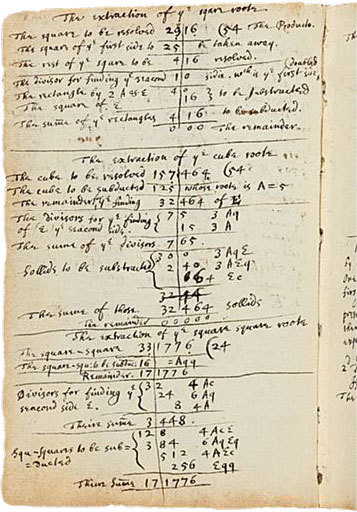 The extraction of yᵉ square roote
The square to be resolved 29|16 (54 The Product.
The square of yᵉ first side to 25 be taken away.
The rest of yᵉ square to be 4 16 resolved.
The divisor for finding yᵉ seacond 10 side. wᶜʰ is yᵉ first side doubled
The rectangle by 2 A & E 4 0 } to be substracted
The square of E 16
The summe of yᵉ rectangles 4 16 to be subducted.
0 00 The remainder.
The extraction of yᵉ cube roote
The cube to be resolved 157|464 (54
The cube to be subducted 125 whose roote is A=5
The remainder for yᵉ finding 32 464 of E
The divisors for yᵉ finding { 7 5 3 Aq
of E yᵉ seacond side { 15 3 A
The summe of yᵉ divisors 7 65.
Sollids to be substracted { 30 0 3 AqE
2 40 3 AEq
64 Ec
32 44
The summ of those 32 464 sollids
The remainder 00000
The extraction of yᵉ square square roote
The square-square 33|1776 (24
The square-squ: to be subduc. 16 =Aqq
Remainder. 17 1776
Divisors for finding yᵉ { 3 2 4 Ac
seacond side E. 24 6 Aq
8 4A
Their summe 3 448.
Squ-squares to be sub= { 12 8 4 AcE
=ducted 3 84 6 AqEq
512 4 AEc
256 Eqq
Their Summe 17 1776